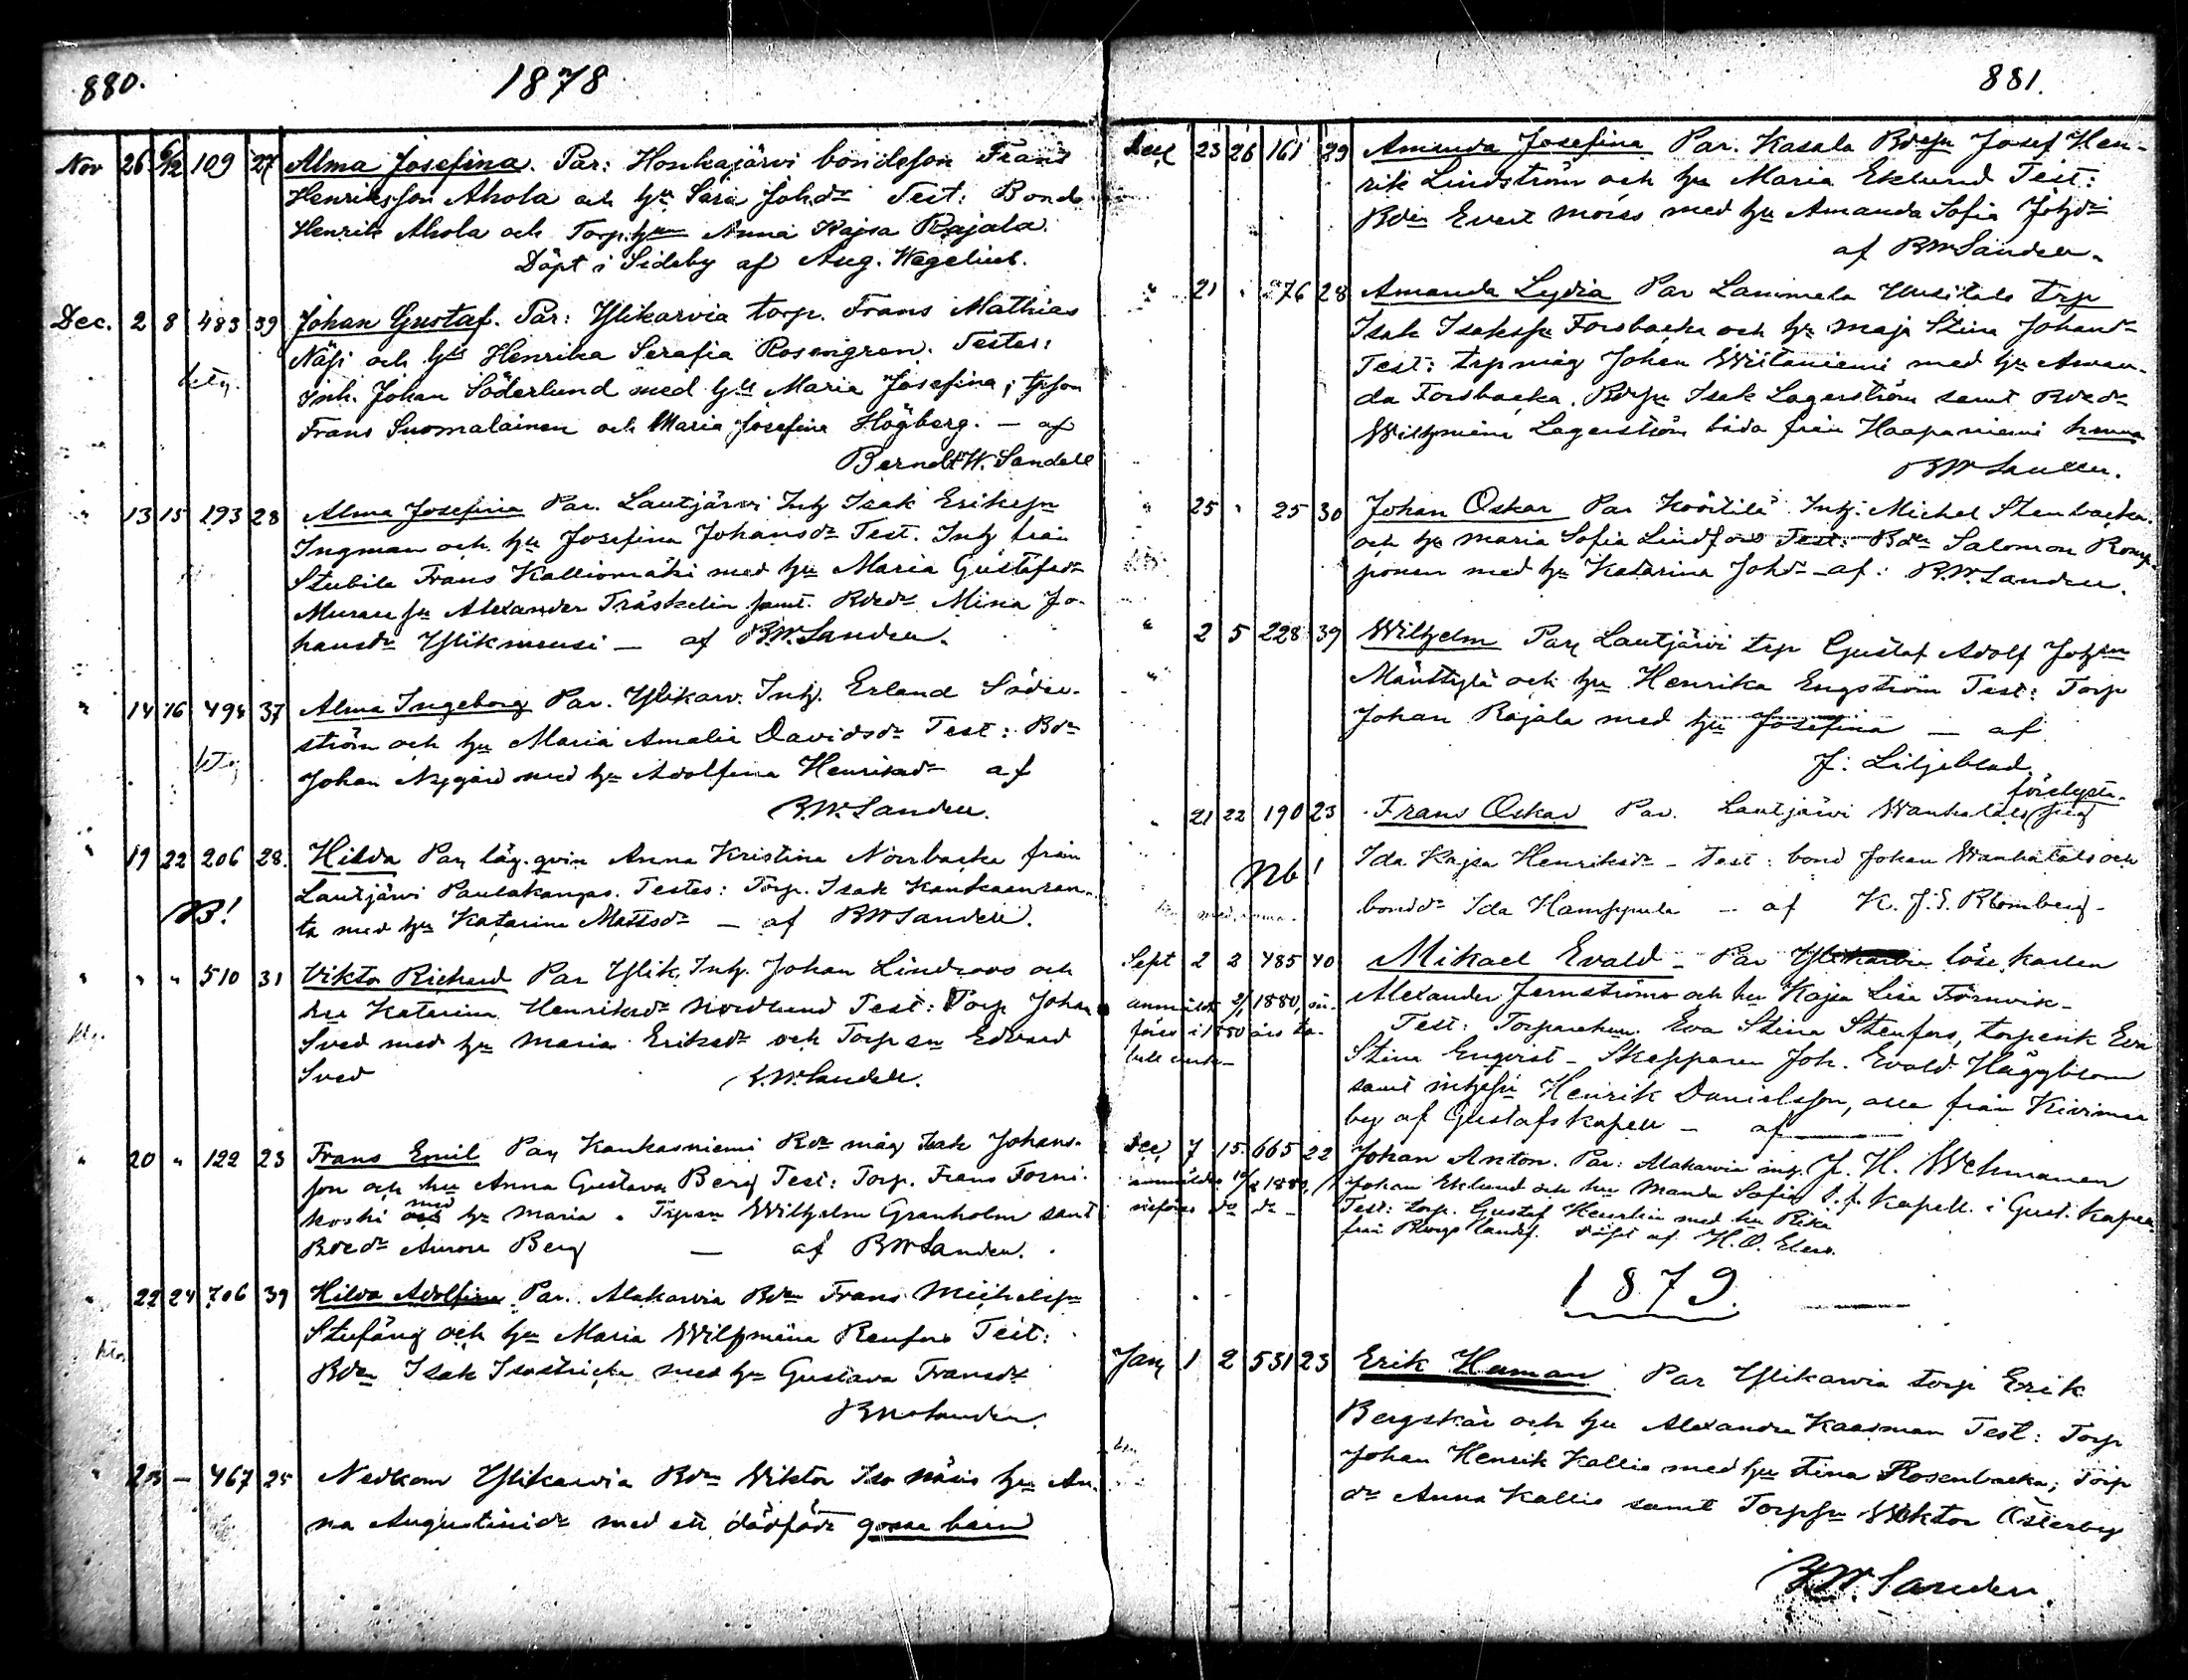 880.
1878
Nov 26 6/12 109 27 Alma Josefina. Par: Honkajärvi bondeson Frans
Henriksson Ahola och hu Sara Johdr Test: Bond
Henrik Ahola och Torp.hu Anna Kajsa Rajala.
Döpt i Sideby af Aug. Wegelius.
Dec. 2 8 483 39 Johan Gustaf. Par: Ylikarvia torp. Frans Mathias
Näsi och hu Henrika Serafia Rosengren. Testes:
Inh. Johan Söderlund med hu Maria Josefina;
Frans Suomalainen och Maria Josefina Högberg. — af
Berndt W. Sandell
" 13 15 193 28 Alma Josefina Par. Lautjärvi Inh Isak Eriksn
Ingman och hu Josefina Johansdr Test. Inh från
Stubila Frans Kalliomäki med hu Maria Gustafsdr
Alexander Träskelin samt. Bdedr Mina Jo-
hansdr — af B.W. Sandell.
" 14 16 494 37 Alma Ingeborg Par. Ylikarv. Inh. Erland Söder-
ström och hu Maria Amalia Davidsdr Test: Bdn
Johan Nygård med hu Adolfina Henriksdr af
B.W. Sandell.
" 19 22 206 28. Hilda Par läg. qvin Anna Kristina Norrbacka från
Lautjärvi Paulakangas. Testes: Torp. Isak Kankaanran-
ta med hu Katarina Mattsdr — af BW Sandell.
NB!
" " " 510 31 Viktor Richard Par Ylik. Inh. Johan Lindroos och
hu Katarina Henriksdr Nordlund Test: Torp Johan
Sved med hu Maria Eriksdr och Torpsn Edvard
Sved B.W. Sandell.
" 20 " 122 23 Frans Emil Par Kankasniemi Bdr måg Isak Johans-
son och hu Anna Gustava Berg Test: Torp. Frans Torni-
med
koski och hu Maria. Torpsn Wilhelm Granholm samt
Bdedr Aurora Berg — af BW Sandell.
" 22 24 706 39 Hilda Adolfina Par. Alakarvia Bdn Frans Michelsn
Stufäng och hu Maria Wilhmina Renfors Test:
Bdn Isak med hu Gustava Fransdr
BW Sandell.
" 23 — 467 25 Nedkom Ylikarvia Bdn Viktor Iso Näsis hu An-
na Augustinidr med ett dödfödt gosse barn
881.
Dec 23 26 161 29 Amanda Josefina Par. Kasala Bdesn Josef Hen-
rik Lindström och hu Maria Eklund Test:
Bdn Evert Moiss med hu Amanda Sofia Johdr
af BW Sandell.
" 21 " 276 28 Amanda Lydia Par Lammela Uusitalo trp
Isak Isakssn Forsbacka och hu Maja Stina Johandr
Test: trp måg Johan Wiitaniemi med hu Aman-
da Forsbacka. Bdesn Isak Lagerström samt Bdedr
Wilhmina Lagerström båda från Haapaniemi
BW Sandell.
" 25 " 25 30 Johan Oskar Par Köörtilä Inh. Michel Stenbacka
och hu Maria Sofia Lindfors Test: Bdn Salomon Romp-
ponen med hu Katarina Johdr — af: B.W. Sandell.
" 2 5 228 39 Wilhelm Par Lautjärvi trp Gustaf Adolf Johsn
Mänttylä och hu Henrika Engström Test: Torp
Johan Rajala med hu Josefina — af
J: Liljeblad
" 21 22 190 23 Frans Oskar Par. Lautjärvi Wanhatalo
Ida Kajsa Henriksdr — Test: bond Johan Wanhatalo och
bonddr Ida Hamppula — af K. J. S. Blomberg.
Nb!
Sept 2 2 485 40 Mikael Evald — Par Ylikarvia löse karlen
Alexander Jernström och hu Kajsa Lisa Törnvik —
anmäldt 2/1 1880, in-
Test: Torparehu. Eva Stina Stenfors, torpenk Eva
förd i 1880 års ta-
Stina Engqvist — Skepparen Joh. Evald Häggblom
samt inhssn Henrik Danielsson, alla från Kivimaa
by af Gustafs kapell — af
J. H. Wehmanen
v. p. Kapell. i Gust. Kapell
Dec 7 15 665 22 Johan Anton. Par: Alakarvia ing.
Johan Eklund och hu Manda Sofia
Test: torp. Gustaf med hu Rika
döpt af H. O. Elers.
1879.
Jan 1 2 531 23 Erik Herman Par Ylikarvia torp Erik
Bergskär och hu Alexandra Kaasman Test: Torp
Johan Henrik Kallio med hu Stina Rosenbacka; Torp
dr Anna Kallio samt Torpsn Wiktor Österby
BW. Sandell.